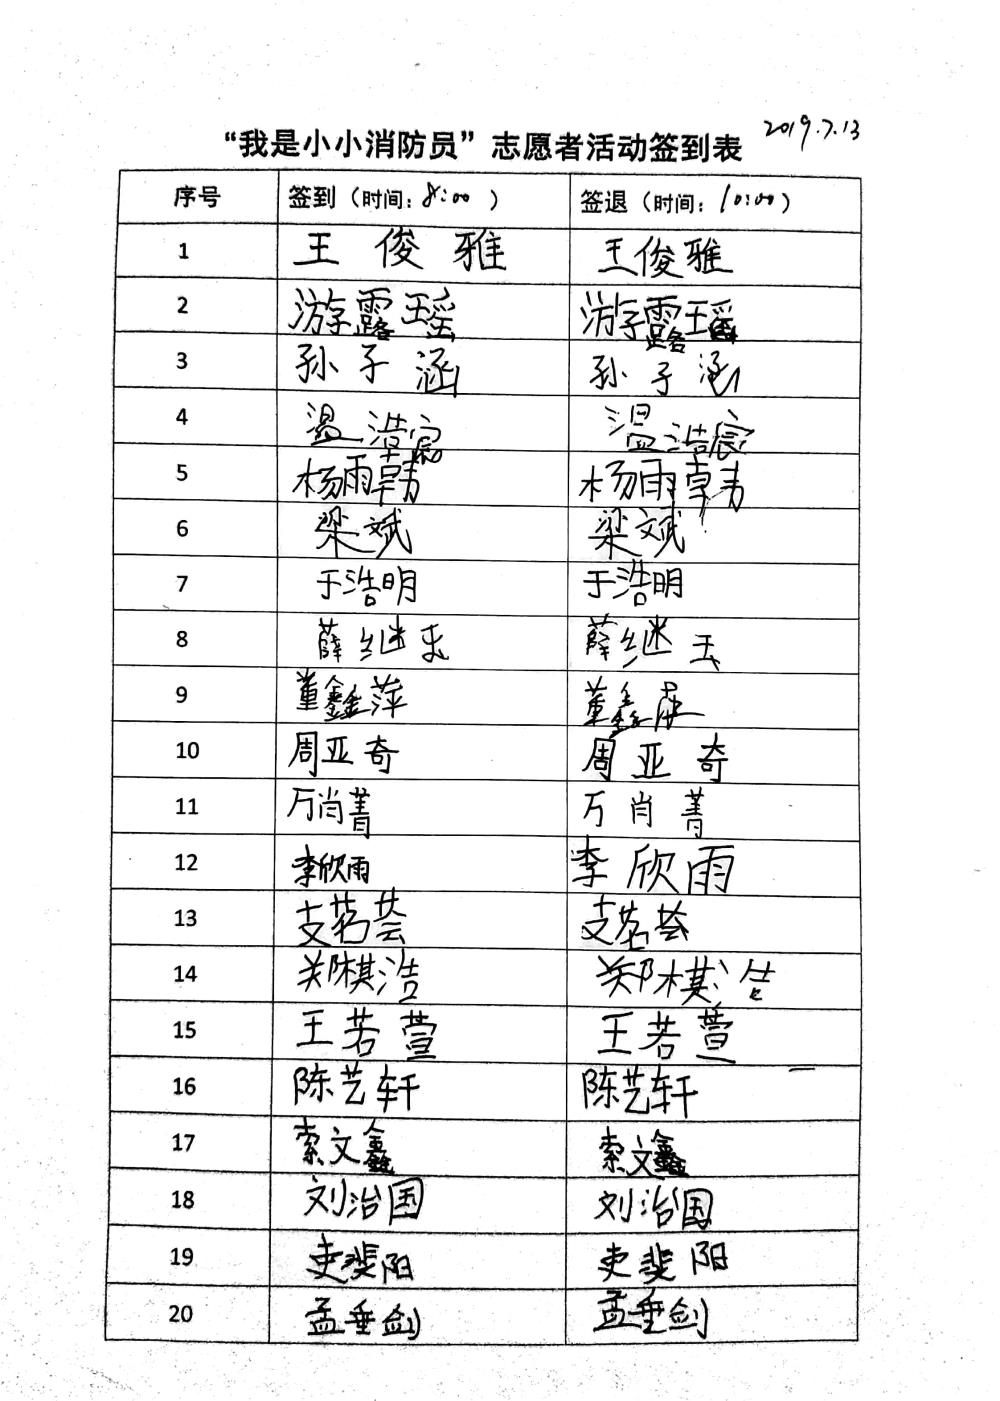 2019.7.13
“我是小小消防员”志愿者活动签到表
序号 签到（时间：8:00 ） 签退（时间：10:00）
1 王俊雅 王俊雅
2 游露瑶 游露瑶
3 孙子涵 孙子涵
4 温浩宸 温浩宸
5 杨雨韩 杨雨韩
6 梁斌 梁斌
7 于浩明 于浩明
8 薛继玉 薛继玉
9 董鑫萍 董鑫萍
10 周亚奇 周亚奇
11 万肖菁 万肖菁
12 李欣雨 李欣雨
13 支茗芸 支茗芸
14 郑棋浩 郑棋浩
15 王若萱 王若萱
16 陈艺轩 陈艺轩
17 索文鑫 索文鑫
18 刘治国 刘治国
19 吏斐阳 吏斐阳
20 孟垂剑 孟垂剑